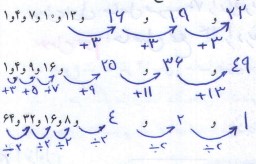 ۱و۴و۷و۱۰و۱۳و ۱۶ و ۱۹ و ۲۲
+۳ +۳ +۳
۱و۴و۹و۱۶و ۲۵ و ۳۶ و ۴۹
+۳ +۵ +۷ +۹ +۱۱ +۱۳
۶۴و۳۲و۱۶و۸و ۴ و ۲ و ۱
÷۲ ÷۲ ÷۲ ÷۲ ÷۲ ÷۲